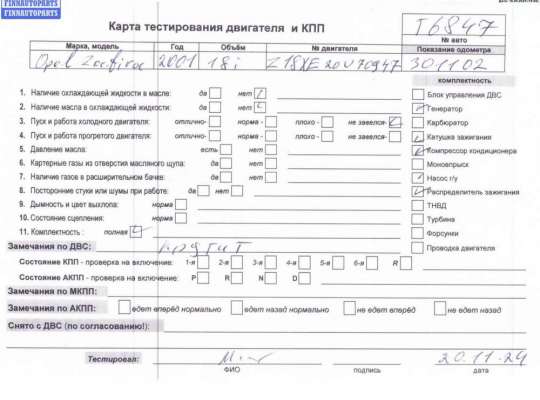 FINNAUTOPARTS
FINNAUTOPARTS
Карта тестирования двигателя и КПП
Т6847
№ авто
Марка, модель Год Объём № двигателя Показание одометра
Opel Zafira 2001 18i Z18XE20U70947 301102
комплектность
1. Наличие охлаждающей жидкости в масле: да нет
2. Наличие масла в охлаждающей жидкости: да нет
3. Пуск и работа холодного двигателя: отлично- норма - плохо - не завелся-
4. Пуск и работа прогретого двигателя: отлично- норма - плохо - не завелся-
5. Давление масла: есть нет
6. Картерные газы из отверстия масляного щупа: да нет
7. Наличие газов в расширительном бачке: да нет
8. Посторонние стуки или шумы при работе: да нет
9. Дымность и цвет выхлопа: норма
10. Состояние сцепления: норма
11. Комплектность : полная
Блок управления ДВС
Генератор
Карбюратор
Катушка зажигания
Компрессор кондиционера
Моновпрыск
Насос г/у
Распределитель зажигания
ТНВД
Турбина
Форсунки
Проводка двигателя
Замечания по ДВС:
Состояние КПП - проверка на включение: 1-я 2-я 3-я 4-я 5-я 6-я R
Состояние АКПП - проверка на включение: P R N D
Замечания по МКПП:
Замечания по АКПП: едет вперёд нормально едет назад нормально не едет вперёд не едет назад
Снято с ДВС (по согласованию!):
Тестировал: 20.11.24
ФИО подпись дата